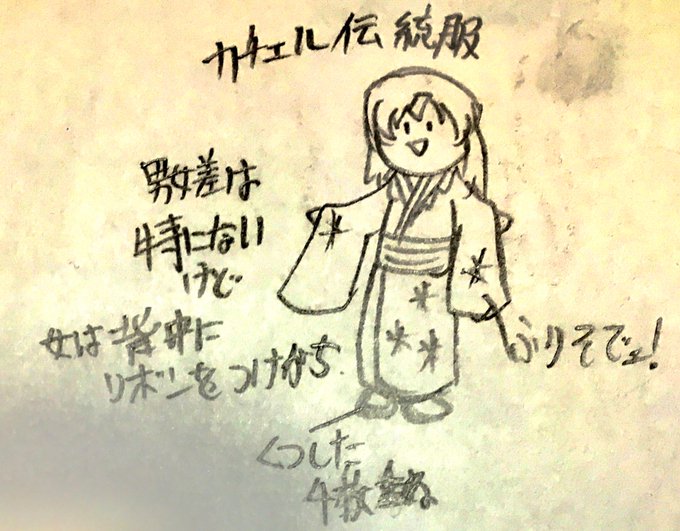 カチェル伝統服
男女差は
特にない
けど
女は背中に
リボンをつけがち
ふりそでェ!
くつした
4枚重ね